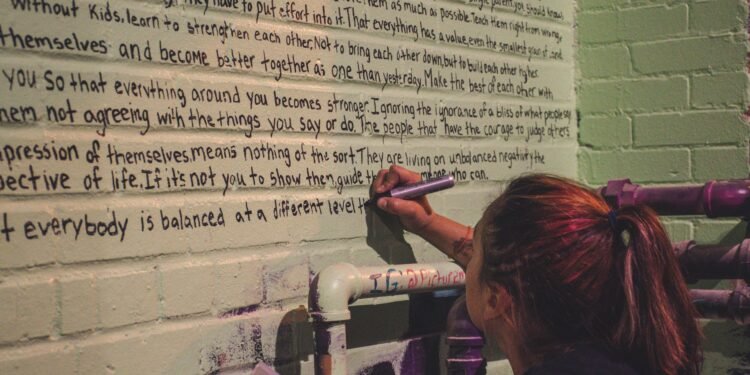 They have to put effort into it. That everything has a value, even the smallest
them as much as possible. Teach them right from wrong,
without Kids, learn to strengthen each other. Not to bring each other down, but to build each other higher.
themselves and become better together as one than yesterday. Make the best of each other with
you So that everything around you becomes stronger. Ignoring the ignorance of a bliss of what people say
not agreeing with the things you say or do. The people that have the courage to judge others
of themselves, means nothing of the sort. They are living on unbalanced negativity the
of life. If it's not you to show then, guide who can.
everybody is balanced at a different level
IG: